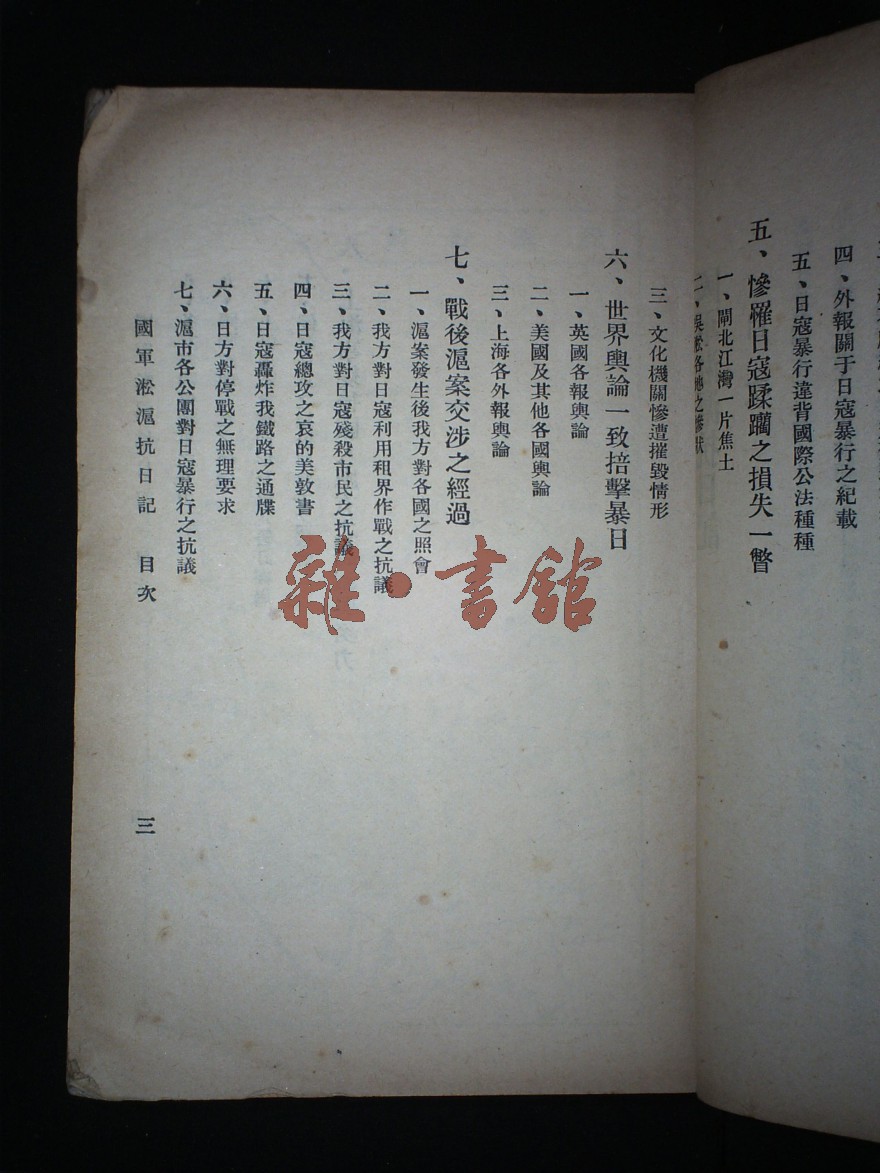 四、外報關于日寇暴行之紀載
五、日寇暴行違背國際公法種種
五、慘罹日寇蹂躪之損失一瞥
一、閘北江灣一片焦土
二、吳淞各地之慘狀
三、文化機關慘遭摧毀情形
六、世界輿論一致掊擊暴日
一、英國各報輿論
二、美國及其他各國輿論
三、上海各外報輿論
七、戰後滬案交涉之經過
一、滬案發生後我方對各國之照會
二、我方對日寇利用租界作戰之抗議
三、我方對日寇殘殺市民之抗議
四、日寇總攻之哀的美敦書
五、日寇轟炸我鐵路之通牒
六、日方對停戰之無理要求
七、滬市各公團對日寇暴行之抗議
國軍淞滬抗日記 目次
三
雜·書館